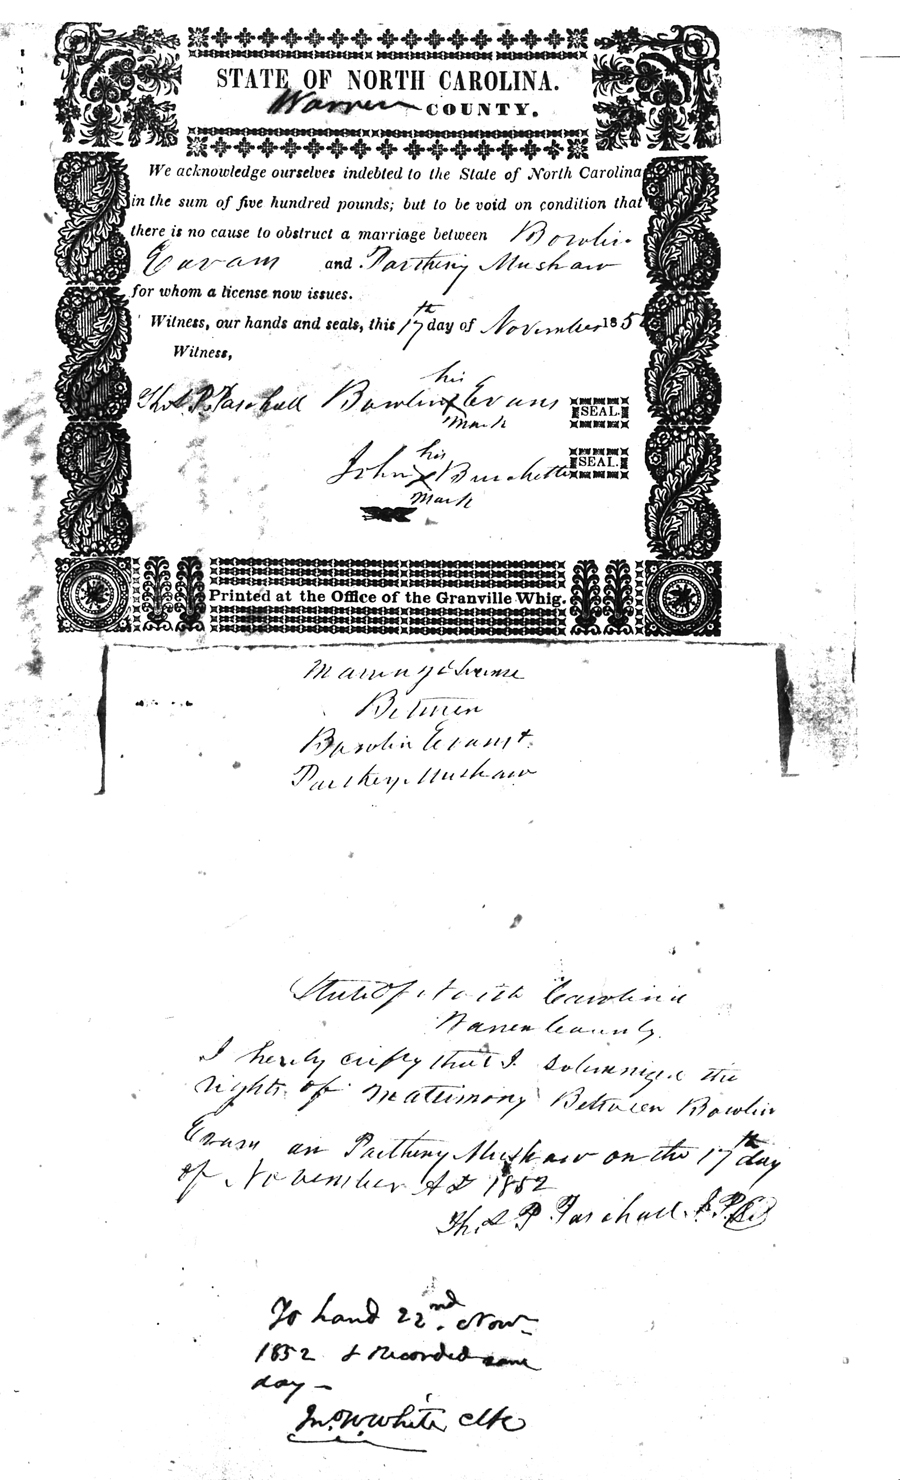 STATE OF NORTH CAROLINA.
Warren COUNTY.
We acknowledge ourselves indebted to the State of North Carolina
in the sum of five hundred pounds; but to be void on condition that
there is no cause to obstruct a marriage between Bowlin
Evans and Partheny Mushaw
for whom a license now issues.
Witness, our hands and seals, this 17th day of November 1852
Witness,
his
Thos P. Paschall Bowlin X Evans SEAL.
mark
his
John X Burchette SEAL.
mark
Printed at the Office of the Granville Whig.
Marriage License
Between
Bowlin Evans &
Partheny Mushaw
State Of North Carolina
Warren County
I hereby certify that I solemnize the
rights of matrimony Between Bowlin
Evans an Partheny Mushaw on the 17th day
of November AD 1852
Thos P. Paschall J.P.
To hand 22nd Nov
1852 & Recorded same
day —
Jno. W. White Clk